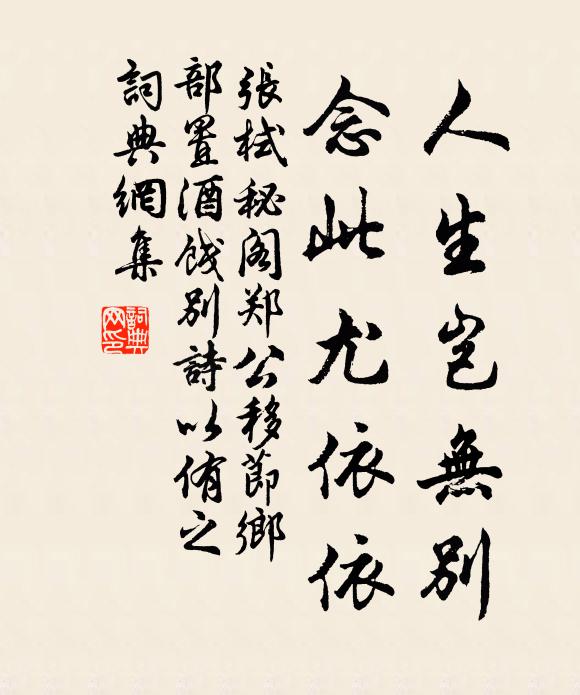 人生岂無別
念此尤依依
張栻秘阁郑公移節鄉
部置酒餞别詩以侑之
詞典網集
詞典
网印